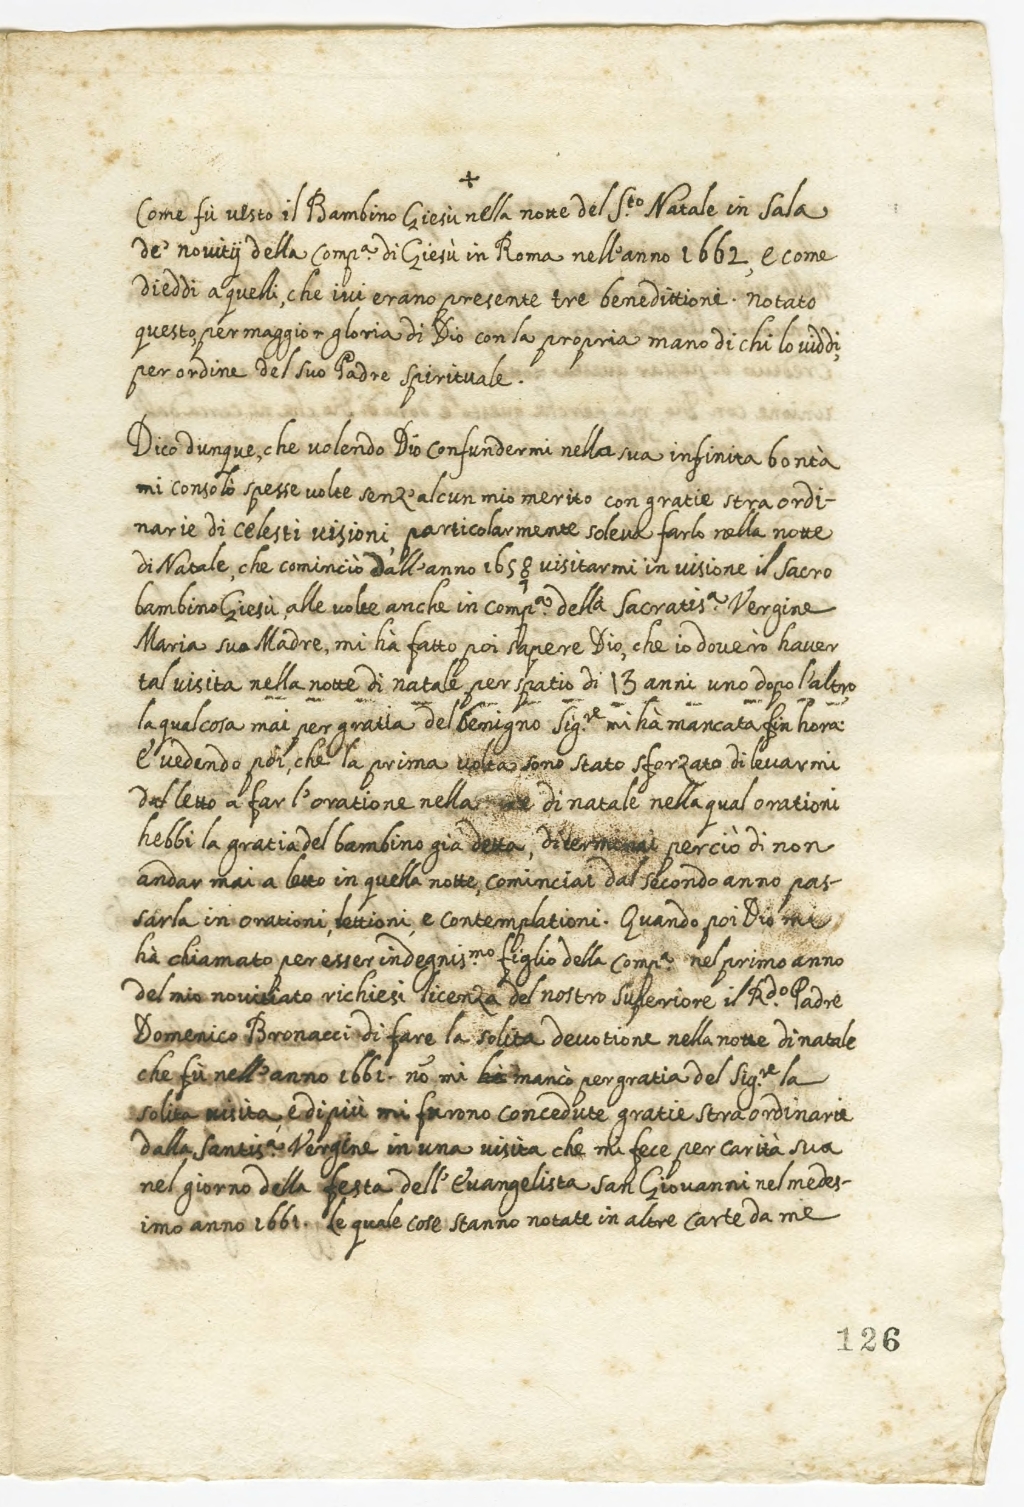 +
Come fù visto il Bambino Giesù nella notte del S.to Natale in Sala
de' novitij della Comp.a di Giesù in Roma nell'anno 1662, e come
dieddi a quelli, che ivi erano presente tre benedittioni. notato
questo per maggior gloria di Dio con la propria mano di chi lo viddi,
per ordine del suo Padre Spirituale.
Dico dunque, che volendo Dio confundermi nella sua infinita bontà
mi consolò spesse volte senz'alcun mio merito con gratie straordi-
narie di celesti visioni, particolarmente soleva farlo nella notte
di Natale, che cominciò dall'anno 1658 visitarmi in visione il Sacro
bambino Giesù, alle volte anche in comp.a della Sacratis.a Vergine
Maria sua Madre, mi hà fatto poi sapere Dio, che io doverò haver
tal visita nella notte di natale per spatio di 13 anni uno dopo l'altro,
la qual cosa mai per gratia del benigno Sig.re mi hà mancata fin hora.
E vedendo poi, che la prima volta sono stato sforzato di levarmi
dal letto a far l'oratione nella di natale nella qual orationi
hebbi la gratia del bambino già detta, diterminai perciò di non
andar mai a letto in quella notte, cominciai dal secondo anno pas-
sarla in orationi, lettioni, e contemplationi. Quando poi Dio mi
hà chiamato per esser indegnis.mo figlio della Comp.a nel primo anno
del mio novitiato richiesi licenza del nostro Superiore il R.do Padre
Domenico Bronacci di fare la solita devotione nella notte di natale
che fù nell'anno 1661. nō mi hà mancò per gratia del Sig.re la
solita visita, e di più mi furono concedute gratie straordinarie
dalla Santis.a Vergine in una visita che mi fece per carità sua
nel giorno della festa dell'Evangelista San Giovanni nel medes-
imo anno 1661. le quale cose stanno notate in altre carte da me
126